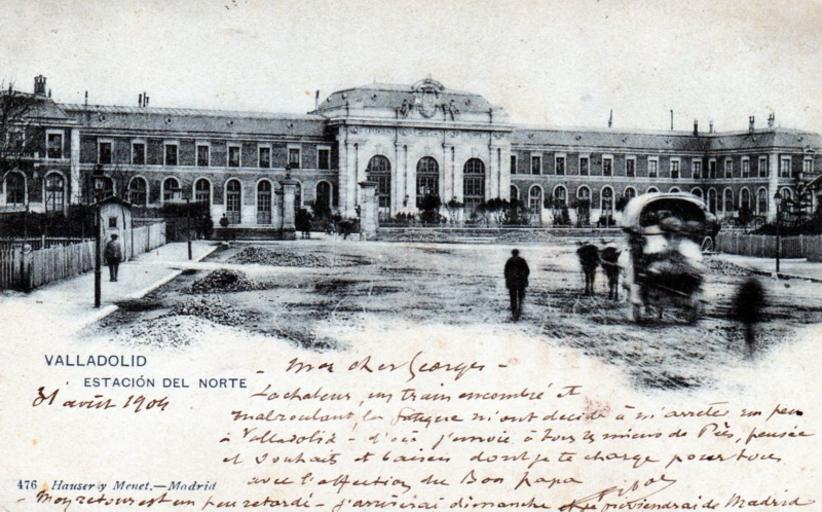 VALLADOLID
ESTACIÓN DEL NORTE
31 août 1904
- Mon cher Georges -
La chaleur, un train encombré et
mal roulant, la fatigue m'ont décidé à m'arrêter un peu
à Valladolid - d'où j'envoie à tous miens de Pensée
et souhaits et baisers dont je te charge pour tous
avec l'affection du Bon papa
476 Hauser y Menet.-Madrid
- Mon retour est un peu retardé - j'arriverai dimanche de Madrid